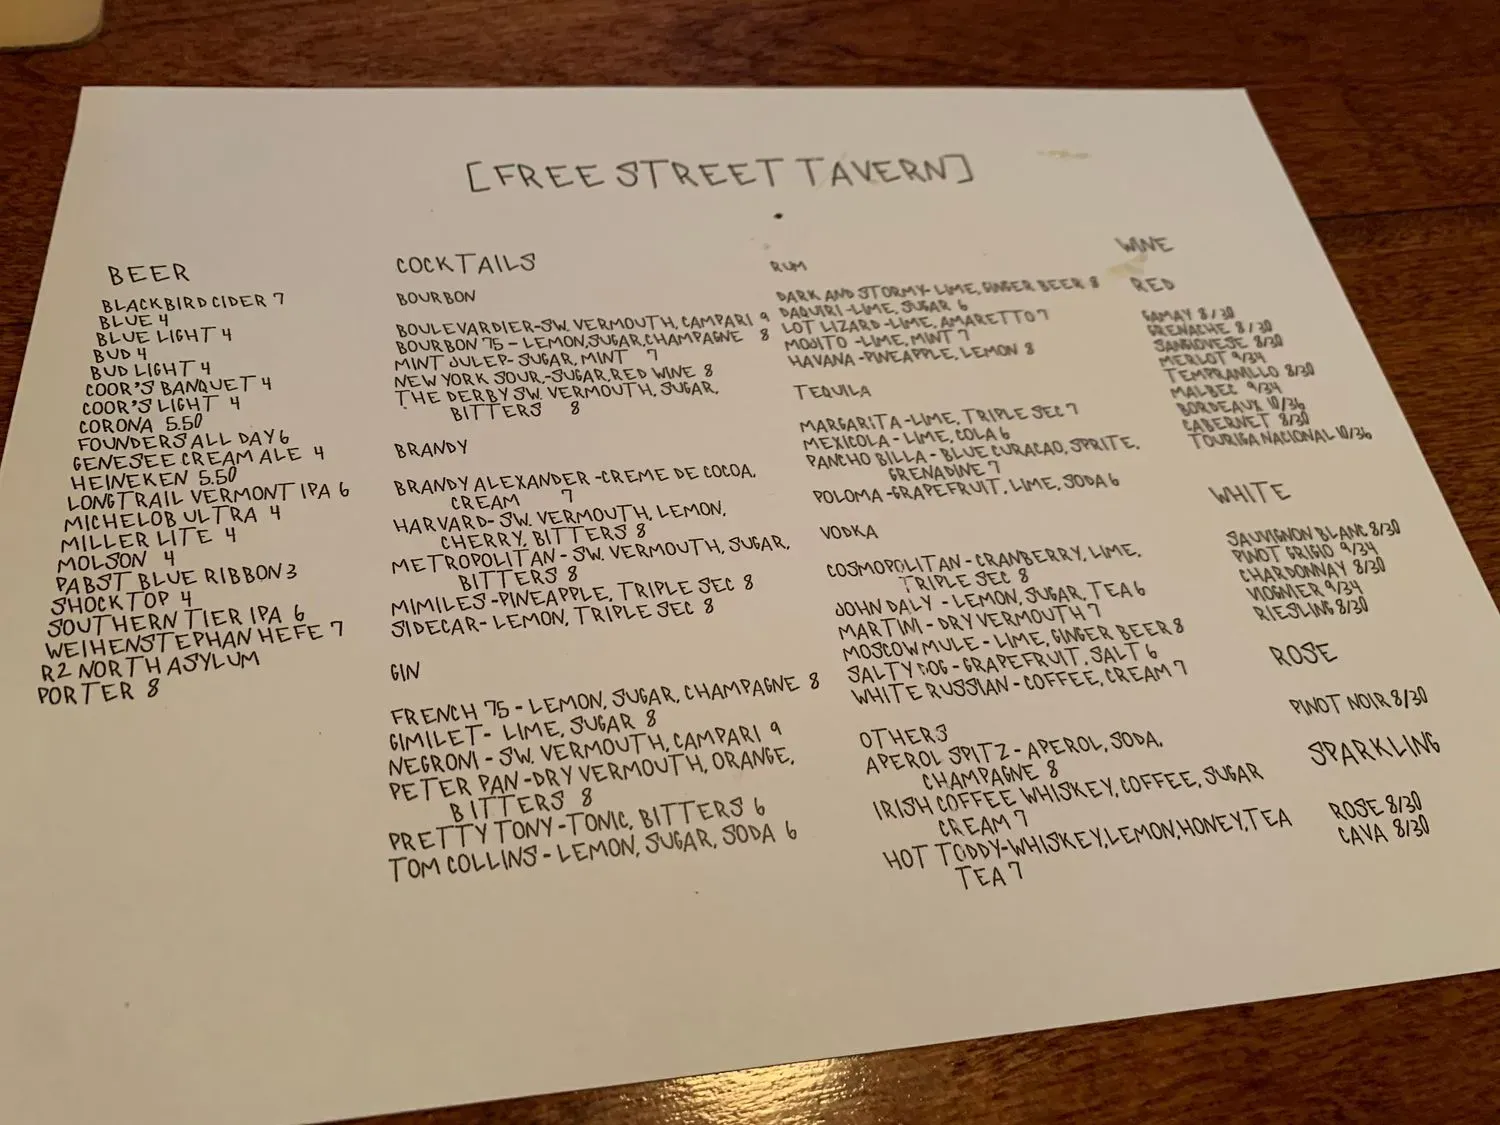 [FREE STREET TAVERN]
BEER
BLACKBIRD CIDER 7
BLUE 4
BLUE LIGHT 4
BUD 4
BUD LIGHT 4
COOR'S BANQUET 4
COOR'S LIGHT 4
CORONA 5.50
FOUNDERS ALL DAY 6
GENESEE CREAM ALE 4
HEINEKEN 5.50
LONGTRAIL VERMONT IPA 6
MICHELOB ULTRA 4
MILLER LITE 4
MOLSON 4
PABST BLUE RIBBON 3
SHOCK TOP 4
SOUTHERN TIER IPA 6
WEIHENSTEPHAN HEFE 7
R2 NORTH ASYLUM
PORTER 8
COCKTAILS
BOURBON
BOULEVARDIER-SW. VERMOUTH, CAMPARI 9
BOURBON 75 - LEMON, SUGAR, CHAMPAGNE 8
MINT JULEP- SUGAR, MINT 7
NEW YORK SOUR,-SUGAR, RED WINE 8
THE DERBY SW. VERMOUTH, SUGAR,
BITTERS 8
BRANDY
BRANDY ALEXANDER -CREME DE COCOA,
CREAM 7
HARVARD- SW. VERMOUTH, LEMON,
CHERRY, BITTERS 8
METROPOLITAN - SW. VERMOUTH, SUGAR,
BITTERS 8
MIMILES -PINEAPPLE, TRIPLE SEC 8
SIDECAR- LEMON, TRIPLE SEC 8
GIN
FRENCH 75 - LEMON, SUGAR, CHAMPAGNE 8
GIMILET- LIME, SUGAR 8
NEGRONI - SW. VERMOUTH, CAMPARI 9
PETER PAN-DRY VERMOUTH, ORANGE,
BITTERS 8
PRETTY TONY -TONIC, BITTERS 6
TOM COLLINS - LEMON, SUGAR, SODA 6
RUM
DARK AND STORMY- LIME, GINGER BEER 8
DAQUIRI -LIME, SUGAR 6
LOT LIZARD -LIME, AMARETTO 7
MOJITO -LIME, MINT 7
HAVANA -PINEAPPLE, LEMON 8
TEQUILA
MARGARITA -LIME, TRIPLE SEC 7
MEXICOLA - LIME, COLA 6
PANCHO BILLA - BLUE CURACAO, SPRITE,
GRENADINE 7
POLOMA -GRAPEFRUIT, LIME, SODA 6
VODKA
COSMOPOLITAN - CRANBERRY, LIME,
TRIPLE SEC 8
JOHN DALY - LEMON, SUGAR, TEA 6
MARTINI - DRY VERMOUTH 7
MOSCOW MULE - LIME, GINGER BEER 8
SALTY DOG - GRAPEFRUIT, SALT 6
WHITE RUSSIAN - COFFEE, CREAM 7
OTHERS
APEROL SPITZ - APEROL, SODA,
CHAMPAGNE 8
IRISH COFFEE WHISKEY, COFFEE, SUGAR
CREAM 7
HOT TODDY-WHISKEY, LEMON, HONEY, TEA
TEA 7
WINE
RED
GAMAY 8/30
GRENACHE 8/30
SANGIOVESE 8/30
MERLOT 9/34
TEMPRANILLO 8/30
MALBEC 9/34
BORDEAUX 10/36
CABERNET 8/30
TOURIGA NACIONAL 10/36
WHITE
SAUVIGNON BLANC 8/30
PINOT GRIGIO 9/34
CHARDONNAY 8/30
VIOGNIER 9/34
RIESLING 8/30
ROSE
PINOT NOIR 8/30
SPARKLING
ROSE 8/30
CAVA 8/30